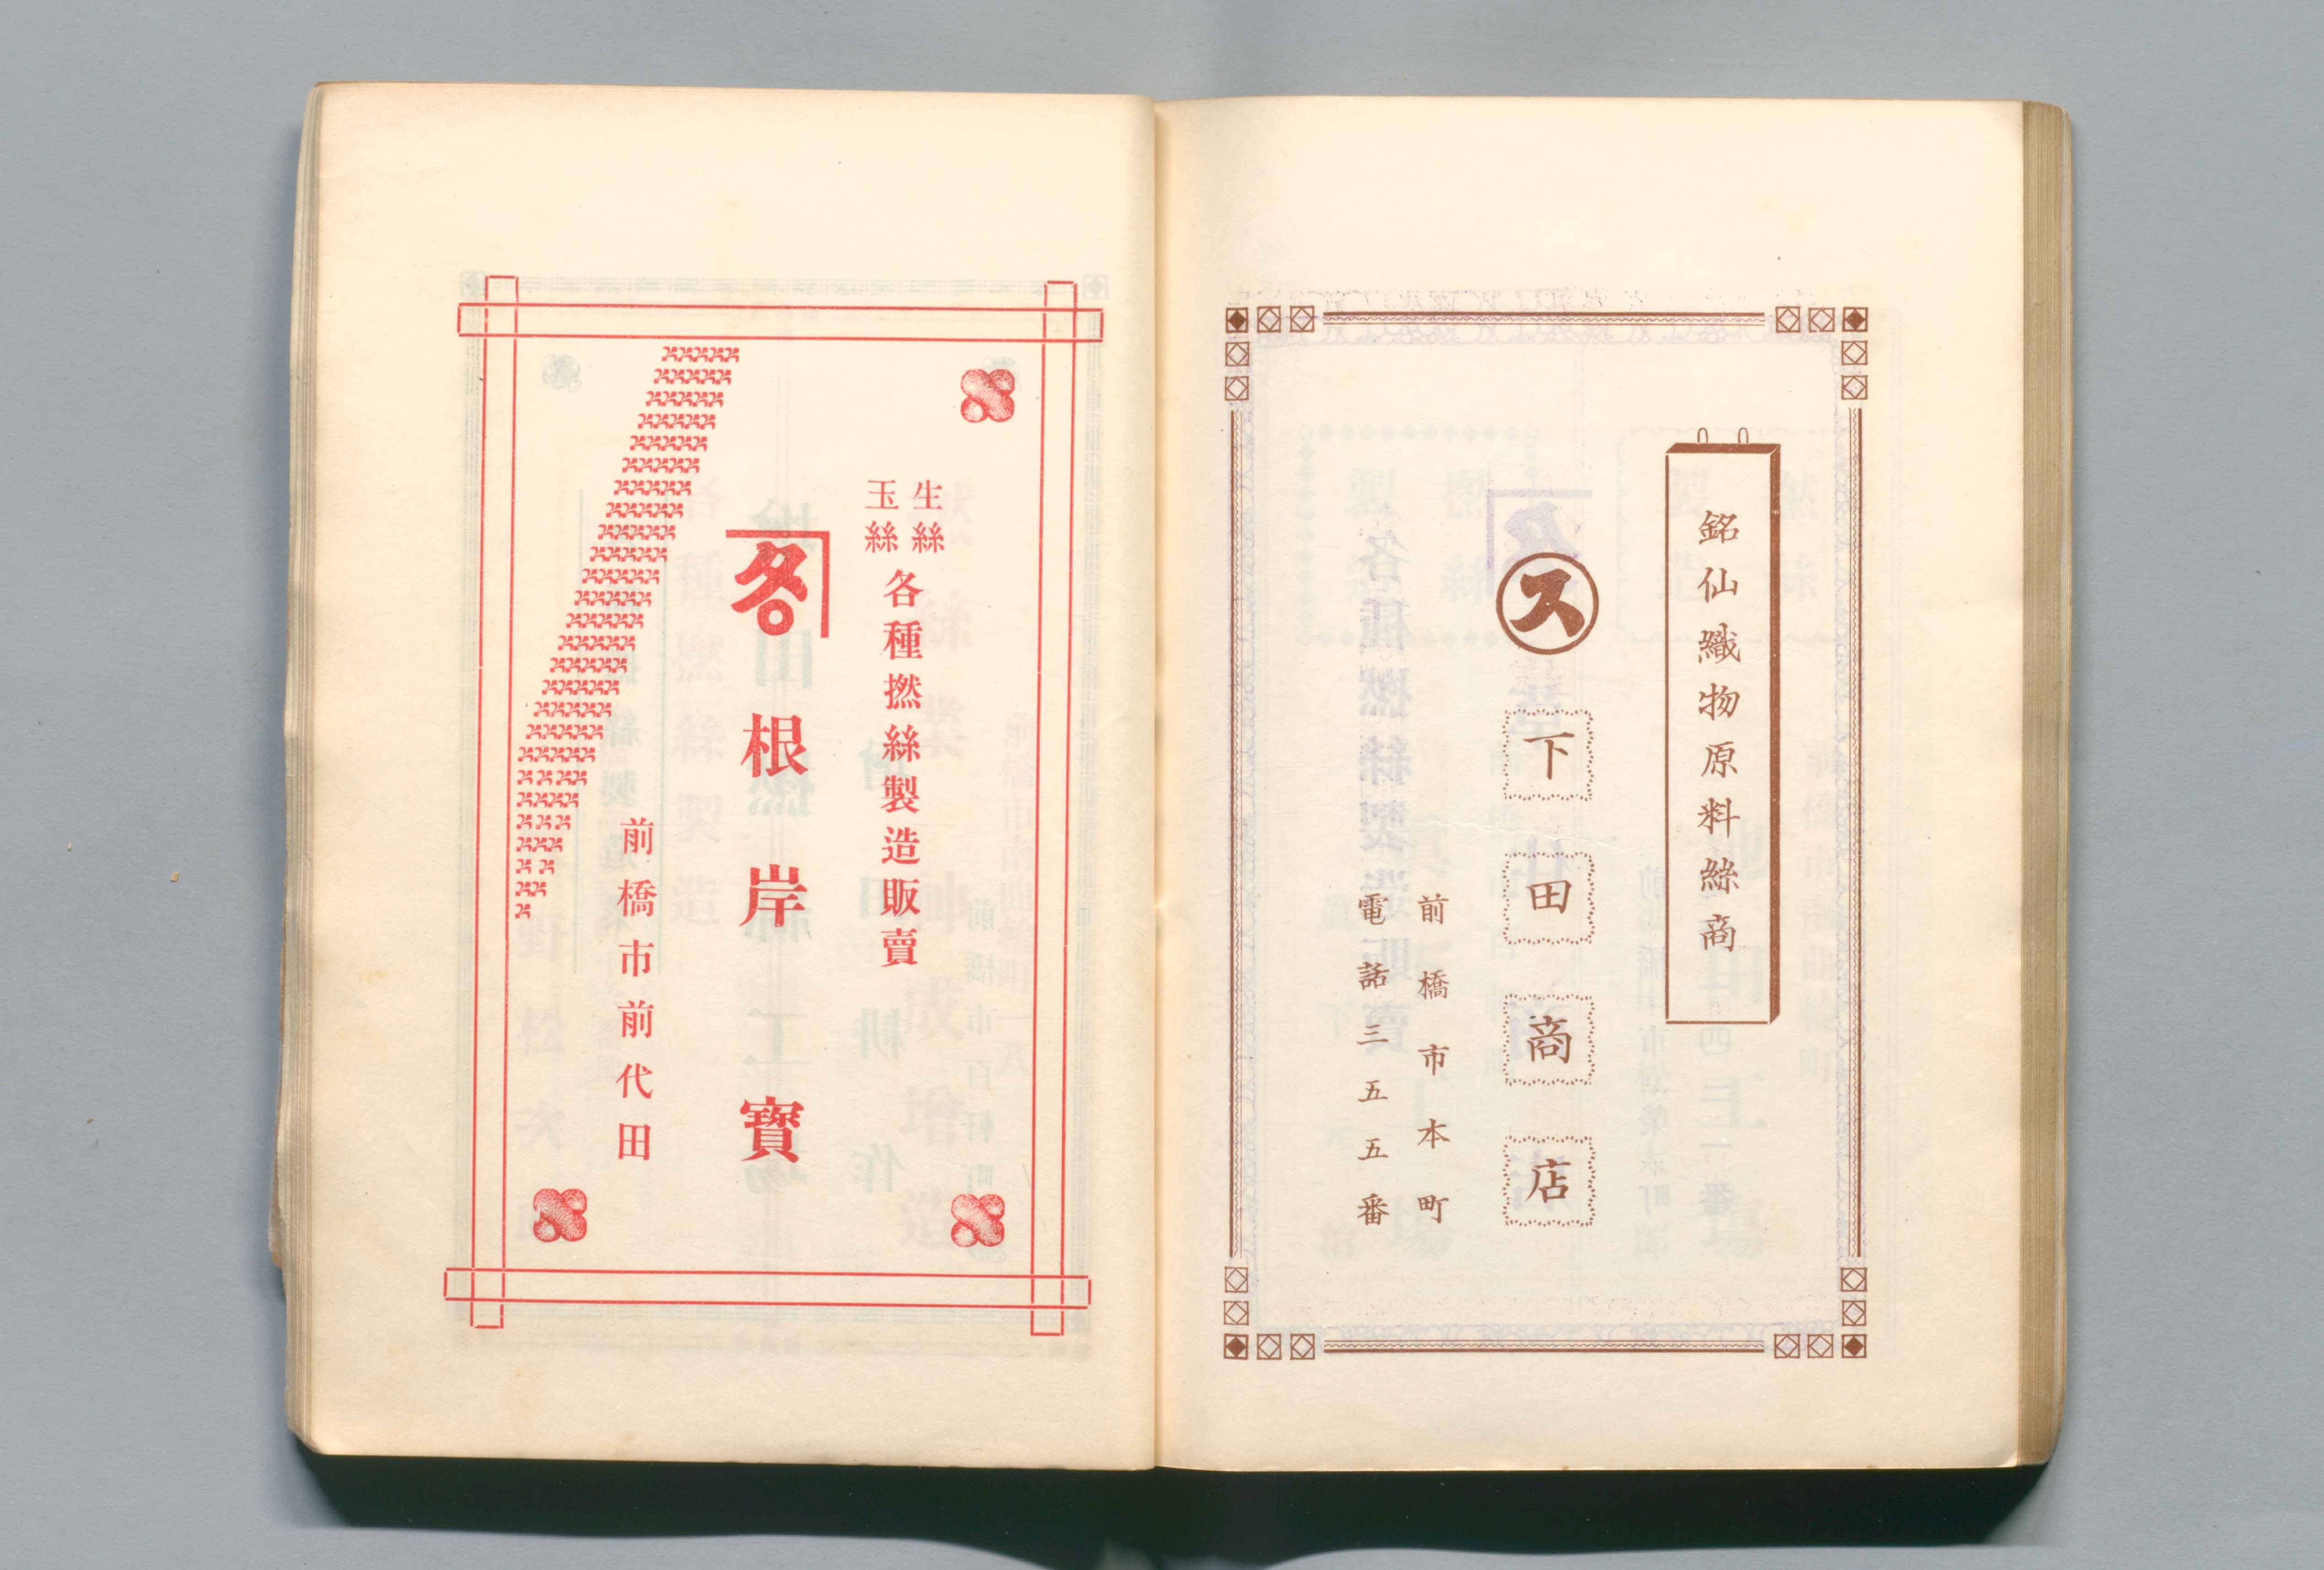 銘仙織物原料絲商
ス
下田商店
前橋市本町
電話三五五番
生絲
玉絲
各種撚絲製造販賣
根岸寳
前橋市前代田